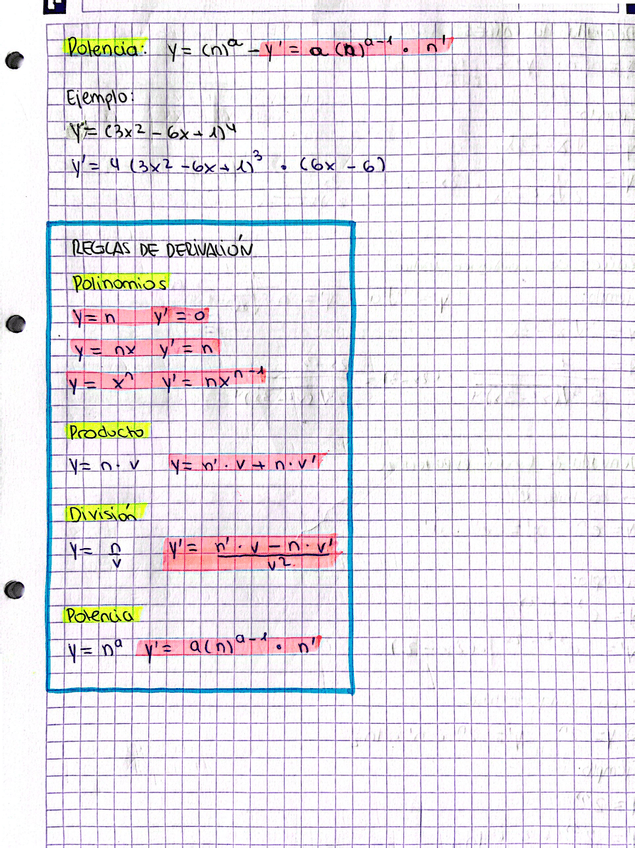 Potencia: y = (n)ᵃ – y' = a (n)ᵃ⁻¹ · n'
Ejemplo:
y = (3x2 – 6x + 1)⁴
y' = 4 (3x2 – 6x + 1)³ · (6x – 6)
REGLAS DE DERIVACIÓN
Polinomios
y = n y' = 0
y = nx y' = n
y = xⁿ y' = nxⁿ⁻¹
Producto
y = n · v y = n' · v + n · v'
División
y = n/v y' = n' · v – n · v' / v²
Potencia
y = nᵃ y' = a(n)ᵃ⁻¹ · n'